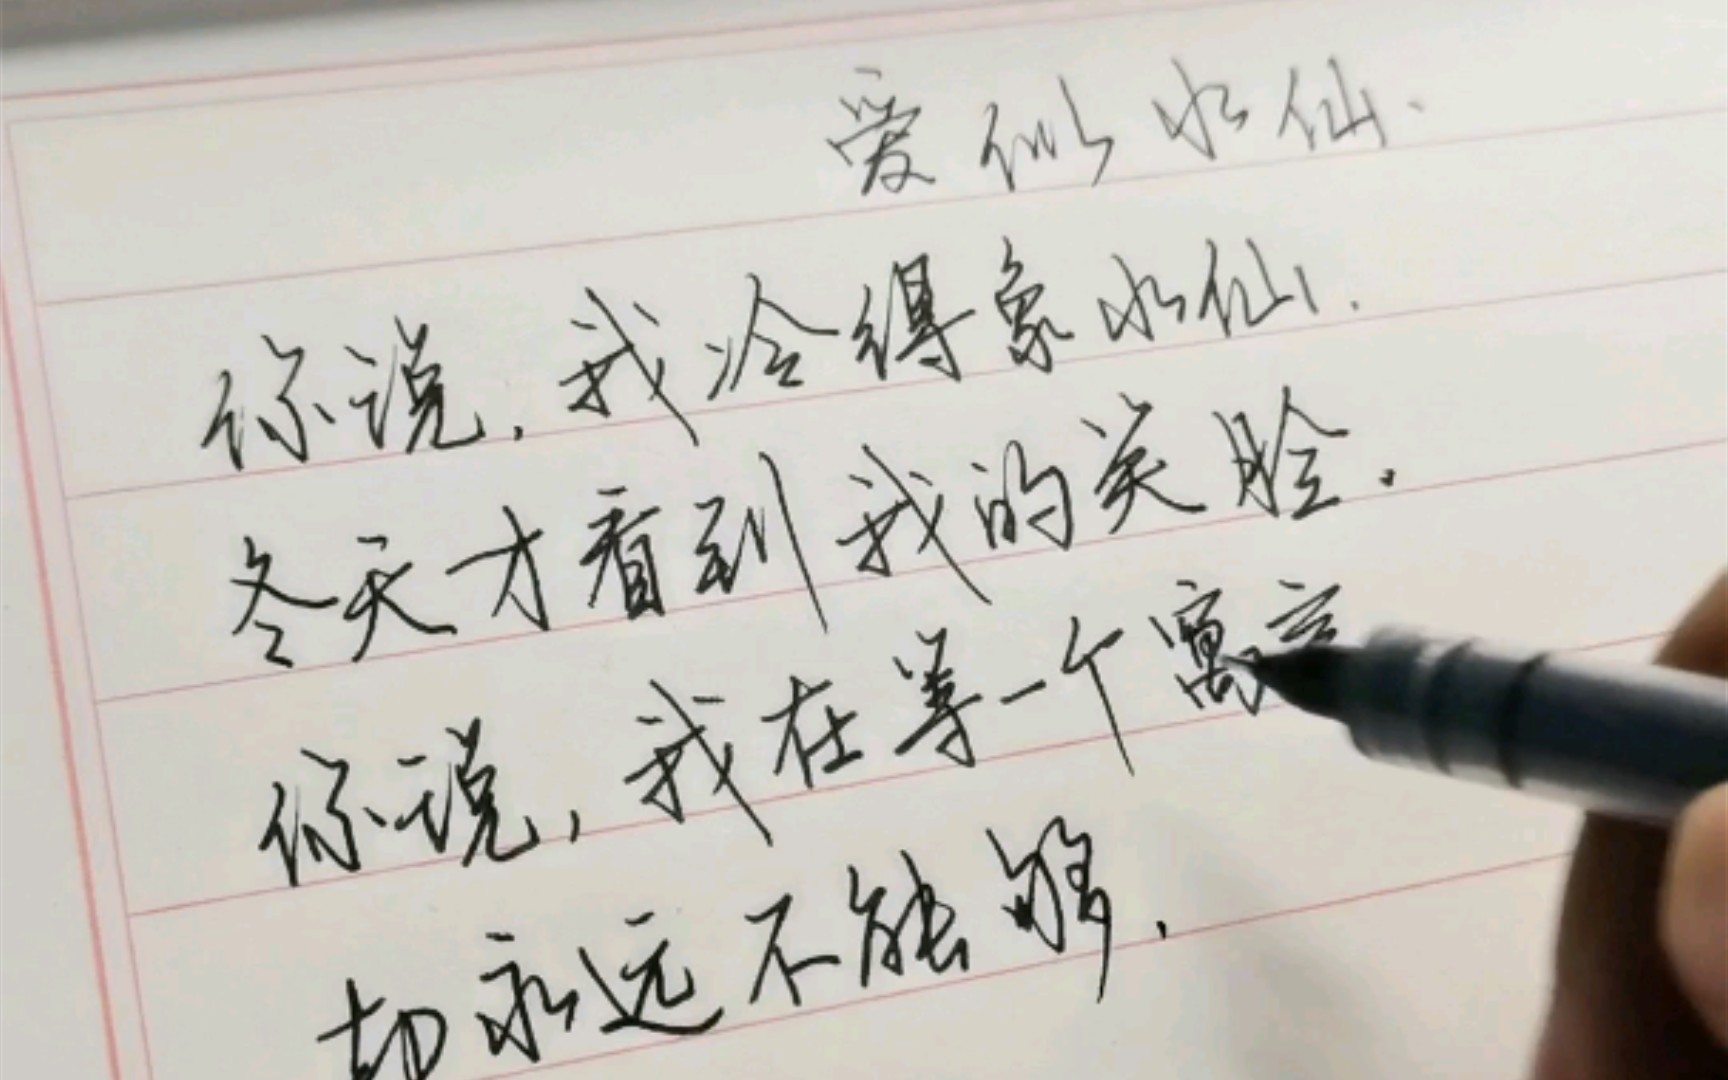 爱似水仙.
你说,我冷得象水仙.
冬天才看到我的笑脸.
你说,我在等一个寓言
却永远不能够.